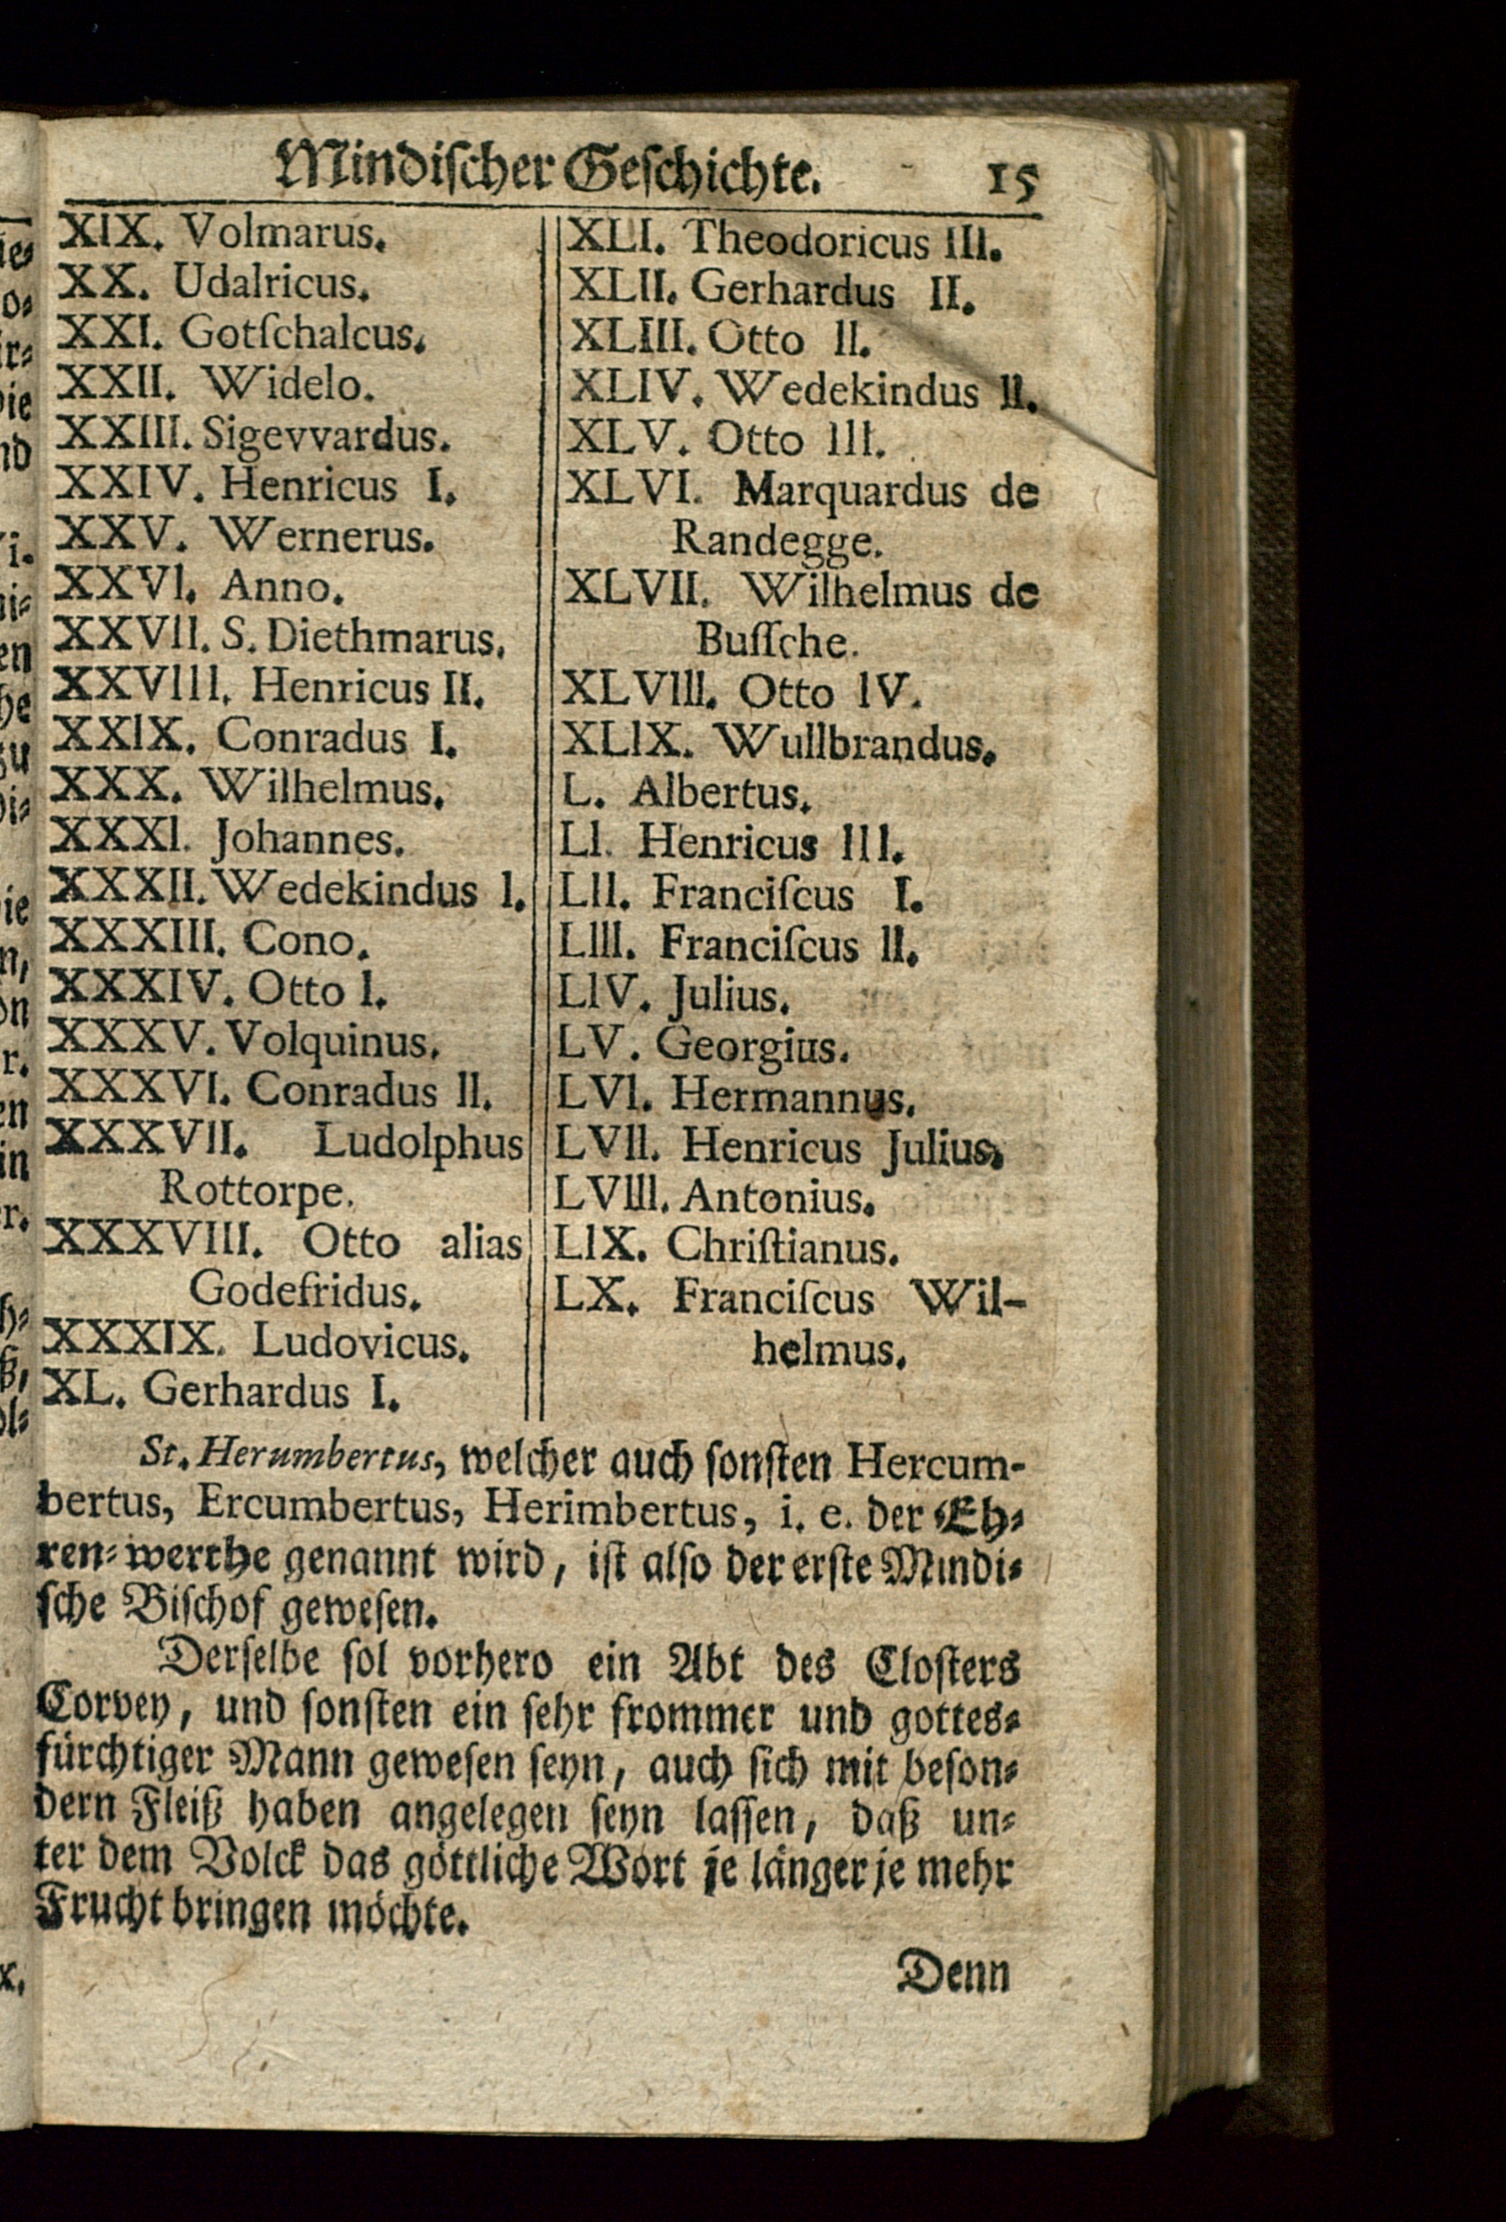 Mindiſcher Geſchichte. 15
XIX. Volmarus.
XX. Udalricus.
XXI. Gotſchalcus.
XXII. Widelo.
XXIII. Sigevvardus.
XXIV. Henricus I.
XXV. Wernerus.
XXVI. Anno.
XXVII. S. Diethmarus.
XXVIII. Henricus II.
XXIX. Conradus I.
XXX. Wilhelmus.
XXXI. Johannes.
XXXII. Wedekindus I.
XXXIII. Cono.
XXXIV. Otto I.
XXXV. Volquinus.
XXXVI. Conradus II.
XXXVII. Ludolphus
Rottorpe.
XXXVIII. Otto alias
Godefridus.
XXXIX. Ludovicus.
XL. Gerhardus I.
XLI. Theodoricus III.
XLII. Gerhardus II.
XLIII. Otto II.
XLIV. Wedekindus II.
XLV. Otto III.
XLVI. Marquardus de
Randegge.
XLVII. Wilhelmus de
Buſſche.
XLVIII. Otto IV.
XLIX. Wullbrandus.
L. Albertus.
LI. Henricus III.
LII. Franciſcus I.
LIII. Franciſcus II.
LIV. Julius.
LV. Georgius.
LVI. Hermannus.
LVII. Henricus Julius.
LVIII. Antonius.
LIX. Chriſtianus.
LX. Franciſcus Wil-
helmus.
St. Herumbertus, welcher auch ſonſten Hercum-
bertus, Ercumbertus, Herimbertus, i. e. der Eh-
ren-werthe genannt wird, iſt alſo der erſte Mindi-
ſche Biſchof geweſen.
Derſelbe ſol vorhero ein Abt des Cloſters
Corvey, und ſonſten ein ſehr frommer und gottes-
fürchtiger Mann geweſen ſeyn, auch ſich mit beſon-
dern Fleiß haben angelegen ſeyn laſſen, daß un-
ter dem Volck das göttliche Wort je länger je mehr
Frucht bringen möchte.
Denn